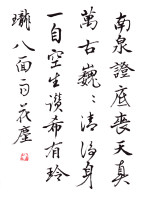 南泉證底喪天真
萬古巍〻清淨身
一自空生讚希有玲
瓏八面雨花塵